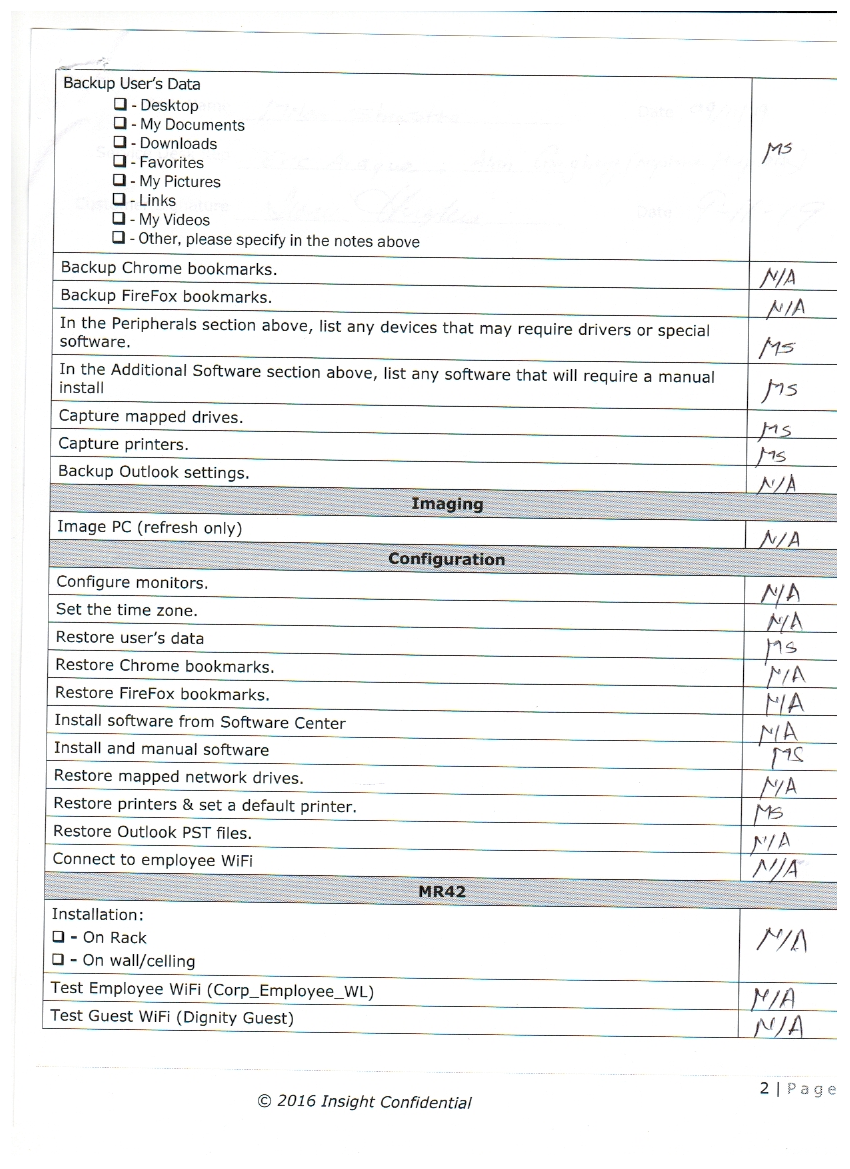 Backup User's Data
❑ - Desktop
❑ - My Documents
❑ - Downloads
❑ - Favorites
❑ - My Pictures
❑ - Links
❑ - My Videos
❑ - Other, please specify in the notes above
MS
Backup Chrome bookmarks. N/A
Backup FireFox bookmarks. N/A
In the Peripherals section above, list any devices that may require drivers or special
software. MS
In the Additional Software section above, list any software that will require a manual
install MS
Capture mapped drives. MS
Capture printers. MS
Backup Outlook settings. N/A
Imaging
Image PC (refresh only) N/A
Configuration
Configure monitors. N/A
Set the time zone. N/A
Restore user's data MS
Restore Chrome bookmarks. N/A
Restore FireFox bookmarks. N/A
Install software from Software Center N/A
Install and manual software MS
Restore mapped network drives. N/A
Restore printers & set a default printer. MS
Restore Outlook PST files. N/A
Connect to employee WiFi N/A
MR42
Installation:
❑ - On Rack
❑ - On wall/celling
N/A
Test Employee WiFi (Corp_Employee_WL) N/A
Test Guest WiFi (Dignity Guest) N/A
2 | Page
© 2016 Insight Confidential